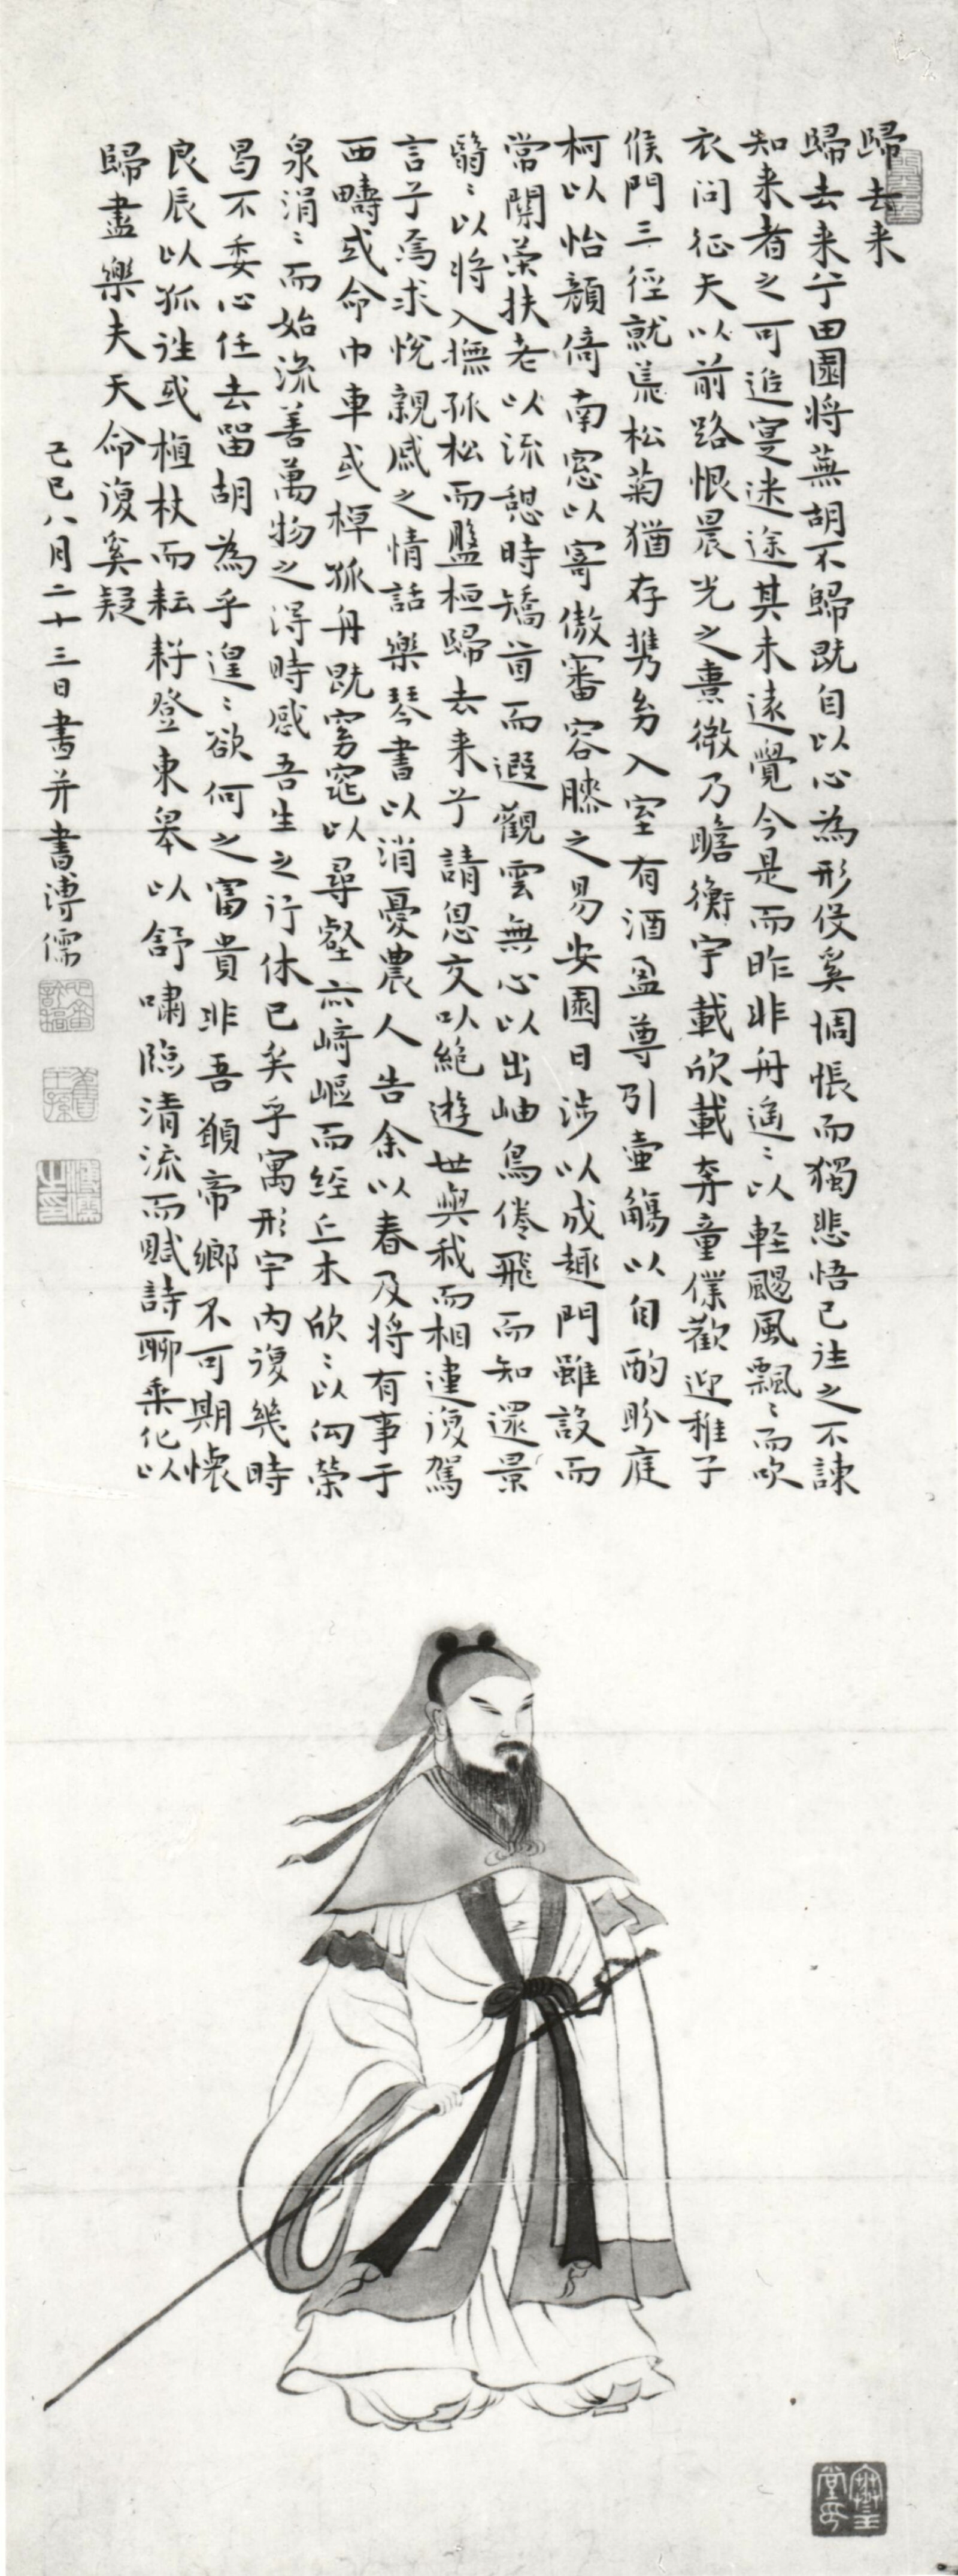 歸去来
歸去来兮田園将蕪胡不歸既自以心為形役奚惆悵而獨悲悟已往之不諫
知来者之可追寔迷途其未遠覺今是而昨非舟遥〻以軽颺風飄〻而吹
衣問征夫以前路恨晨光之熹微乃瞻衡宇載欣載奔童僕歡迎稚子
候門三徑就荒松菊猶存携幼入室有酒盈尊引壷觴以自酌眄庭
柯以怡顔倚南窓以寄傲審容膝之易安園日涉以成趣門雖設而
常関策扶老以流憩時矯首而遐觀雲無心以出岫鳥倦飛而知還景
翳〻以将入撫孤松而盤桓歸去来兮請息交以絶遊世與我而相違復駕
言兮焉求悅親戚之情話樂琴書以消憂農人告余以春及将有事于
西疇或命巾車或棹孤舟既窈窕以尋壑亦崎嶇而経丘木欣〻以向榮
泉涓〻而始流善萬物之得時感吾生之行休已矣乎寓形宇内復幾時
曷不委心任去留胡為乎遑〻欲何之富貴非吾願帝鄉不可期懷
良辰以孤往或植杖而耘耔登東皋以舒嘯臨清流而賦詩聊乗化以
歸盡樂夫天命復奚疑
己巳八月二十三日書并書溥儒
溥儒之印